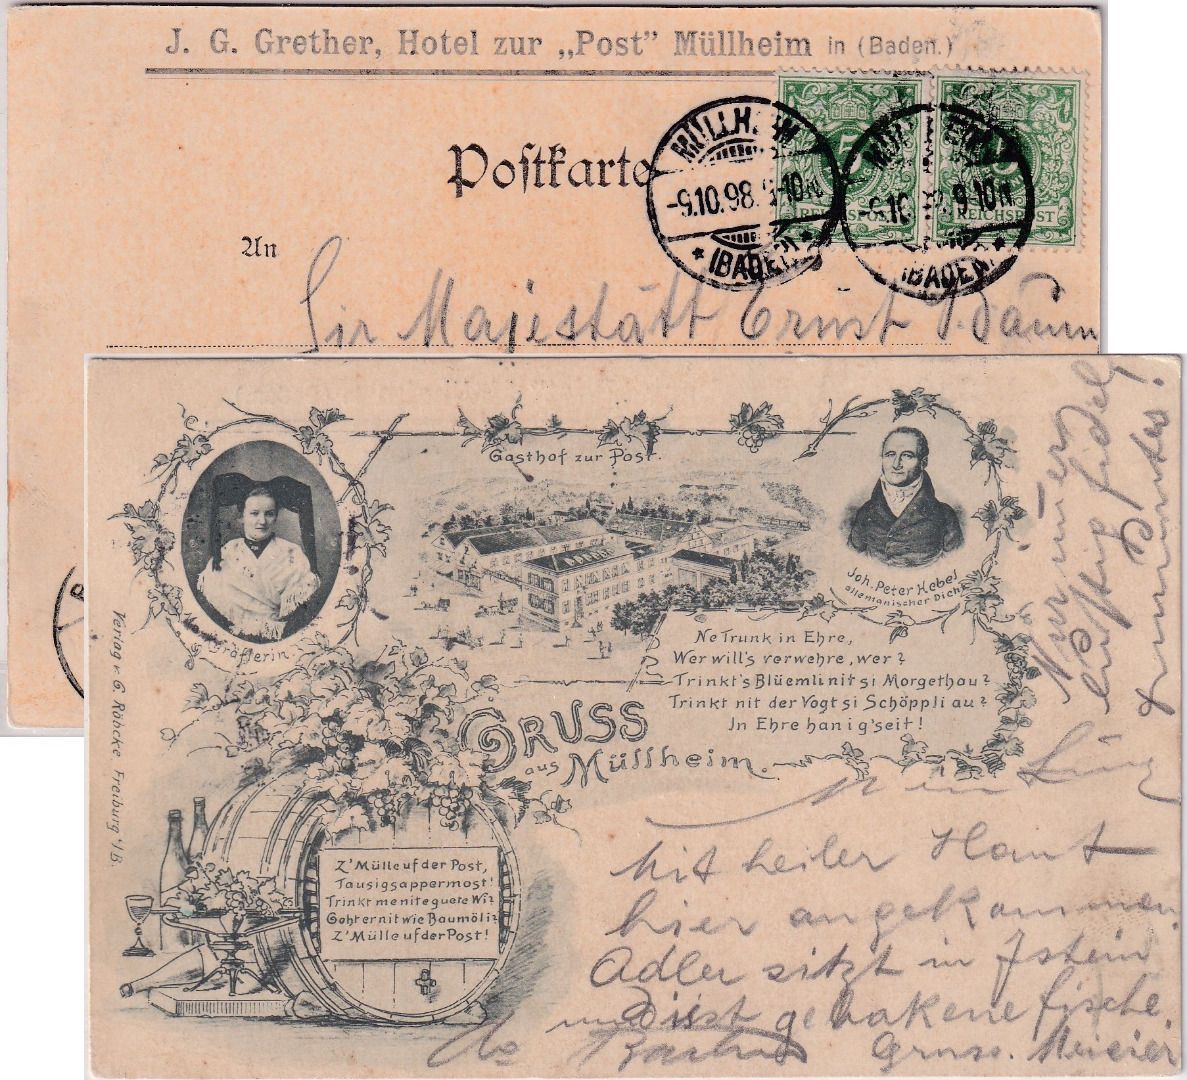 J. G. Grether, Hotel zur „Post" Müllheim in (Baden.)
Postkarte
MÜLLHEIM
-9.10.98. 9-10N
* (BADEN) *
REICHSPOST
9-10N
REICHSPOST
(BADEN)
An
Sir Majestätt Ernst
Gasthof zur Post.
Joh. Peter Hebel
allemanischer Dicht
Markgräflerin
Ne Trunk in Ehre,
Wer will's verwehre, wer?
Trinkt's Blüemli nit si Morgethau?
Trinkt nit der Vogt si Schöppli au?
In Ehre han i g'seit!
GRUSS
aus Müllheim.
Verlag v. G. Röbcke, Freiburg i/B.
Z'Mülle uf der Post,
Tausigsappermost!
Trinkt me nit e guete Wi?
Goht er nit wie Baumöli?
Z'Mülle uf der Post!
Nur immer
fidel
Mit heiler Haut
hier angekommen
Adler sitzt in Istein
und isst gebakene fische.
Gruss. Meier